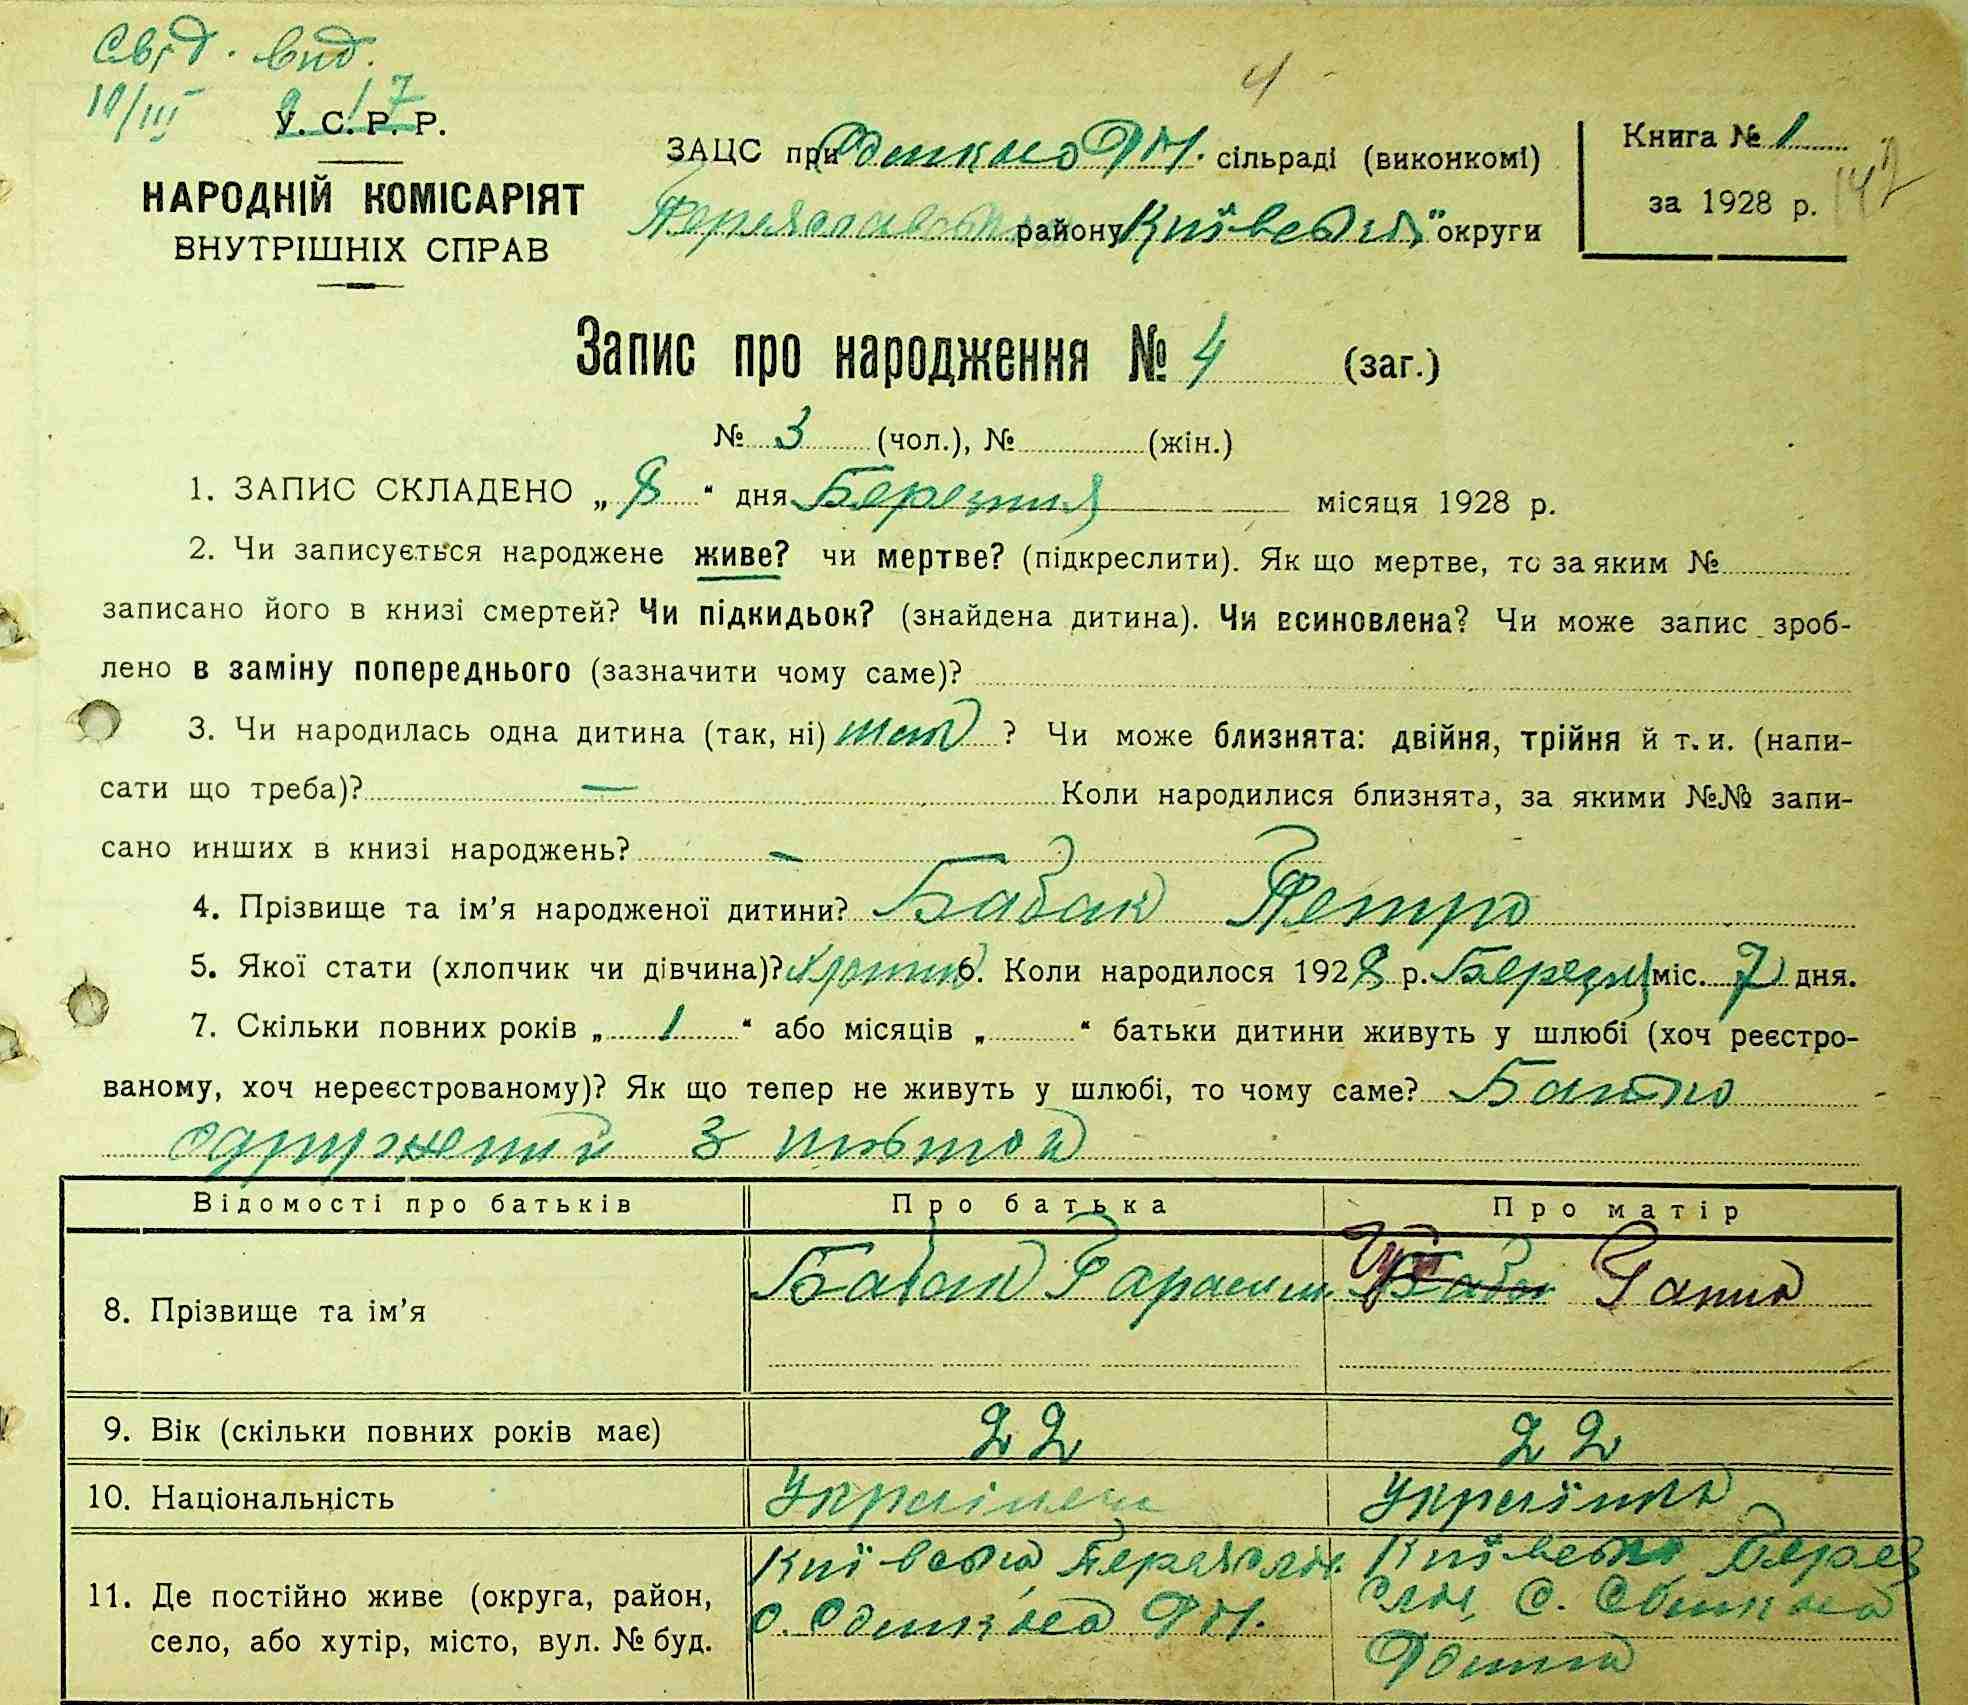 Свід. вид.
10/III
4
У. С. Р. Р.
НАРОДНІЙ КОМІСАРІЯТ
ВНУТРІШНІХ СПРАВ
ЗАЦС при сільраді (виконкомі)
району Київської округи
Книга № 1
за 1928 р.
142
Запис про народження № 4 (заг.)
№ 3 (чол.), № (жін.)
1. ЗАПИС СКЛАДЕНО „ 8 “ дня Березня місяця 1928 р.
2. Чи записується народжене живе? чи мертве? (підкреслити). Як що мертве, то за яким №
записано його в книзі смертей? Чи підкидьок? (знайдена дитина). Чи всиновлена? Чи може запис зроб-
лено в заміну попереднього (зазначити чому саме)?
3. Чи народилась одна дитина (так, ні) так ? Чи може близнята: двійня, трійня й т. и. (напи-
сати що треба)? — Коли народилися близнята, за якими №№ запи-
сано инших в книзі народжень? —
4. Прізвище та ім’я народженої дитини? Бабак Петро
5. Якої стати (хлопчик чи дівчина)? 6. Коли народилося 1928 р. Березня міс. 7 дня.
7. Скільки повних років „ 1 “ або місяців „ “ батьки дитини живуть у шлюбі (хоч реєстро-
ваному, хоч нереєстрованому)? Як що тепер не живуть у шлюбі, то чому саме? Батько
одружений з
Відомості про батьків Про батька Про матір
8. Прізвище та ім’я Бабак Ганна
9. Вік (скільки повних років має) 22 22
10. Національність Українець Українка
11. Де постійно живе (округа, район,
село, або хутір, місто, вул. № буд.
Київська Переяслав.
Київська
с.